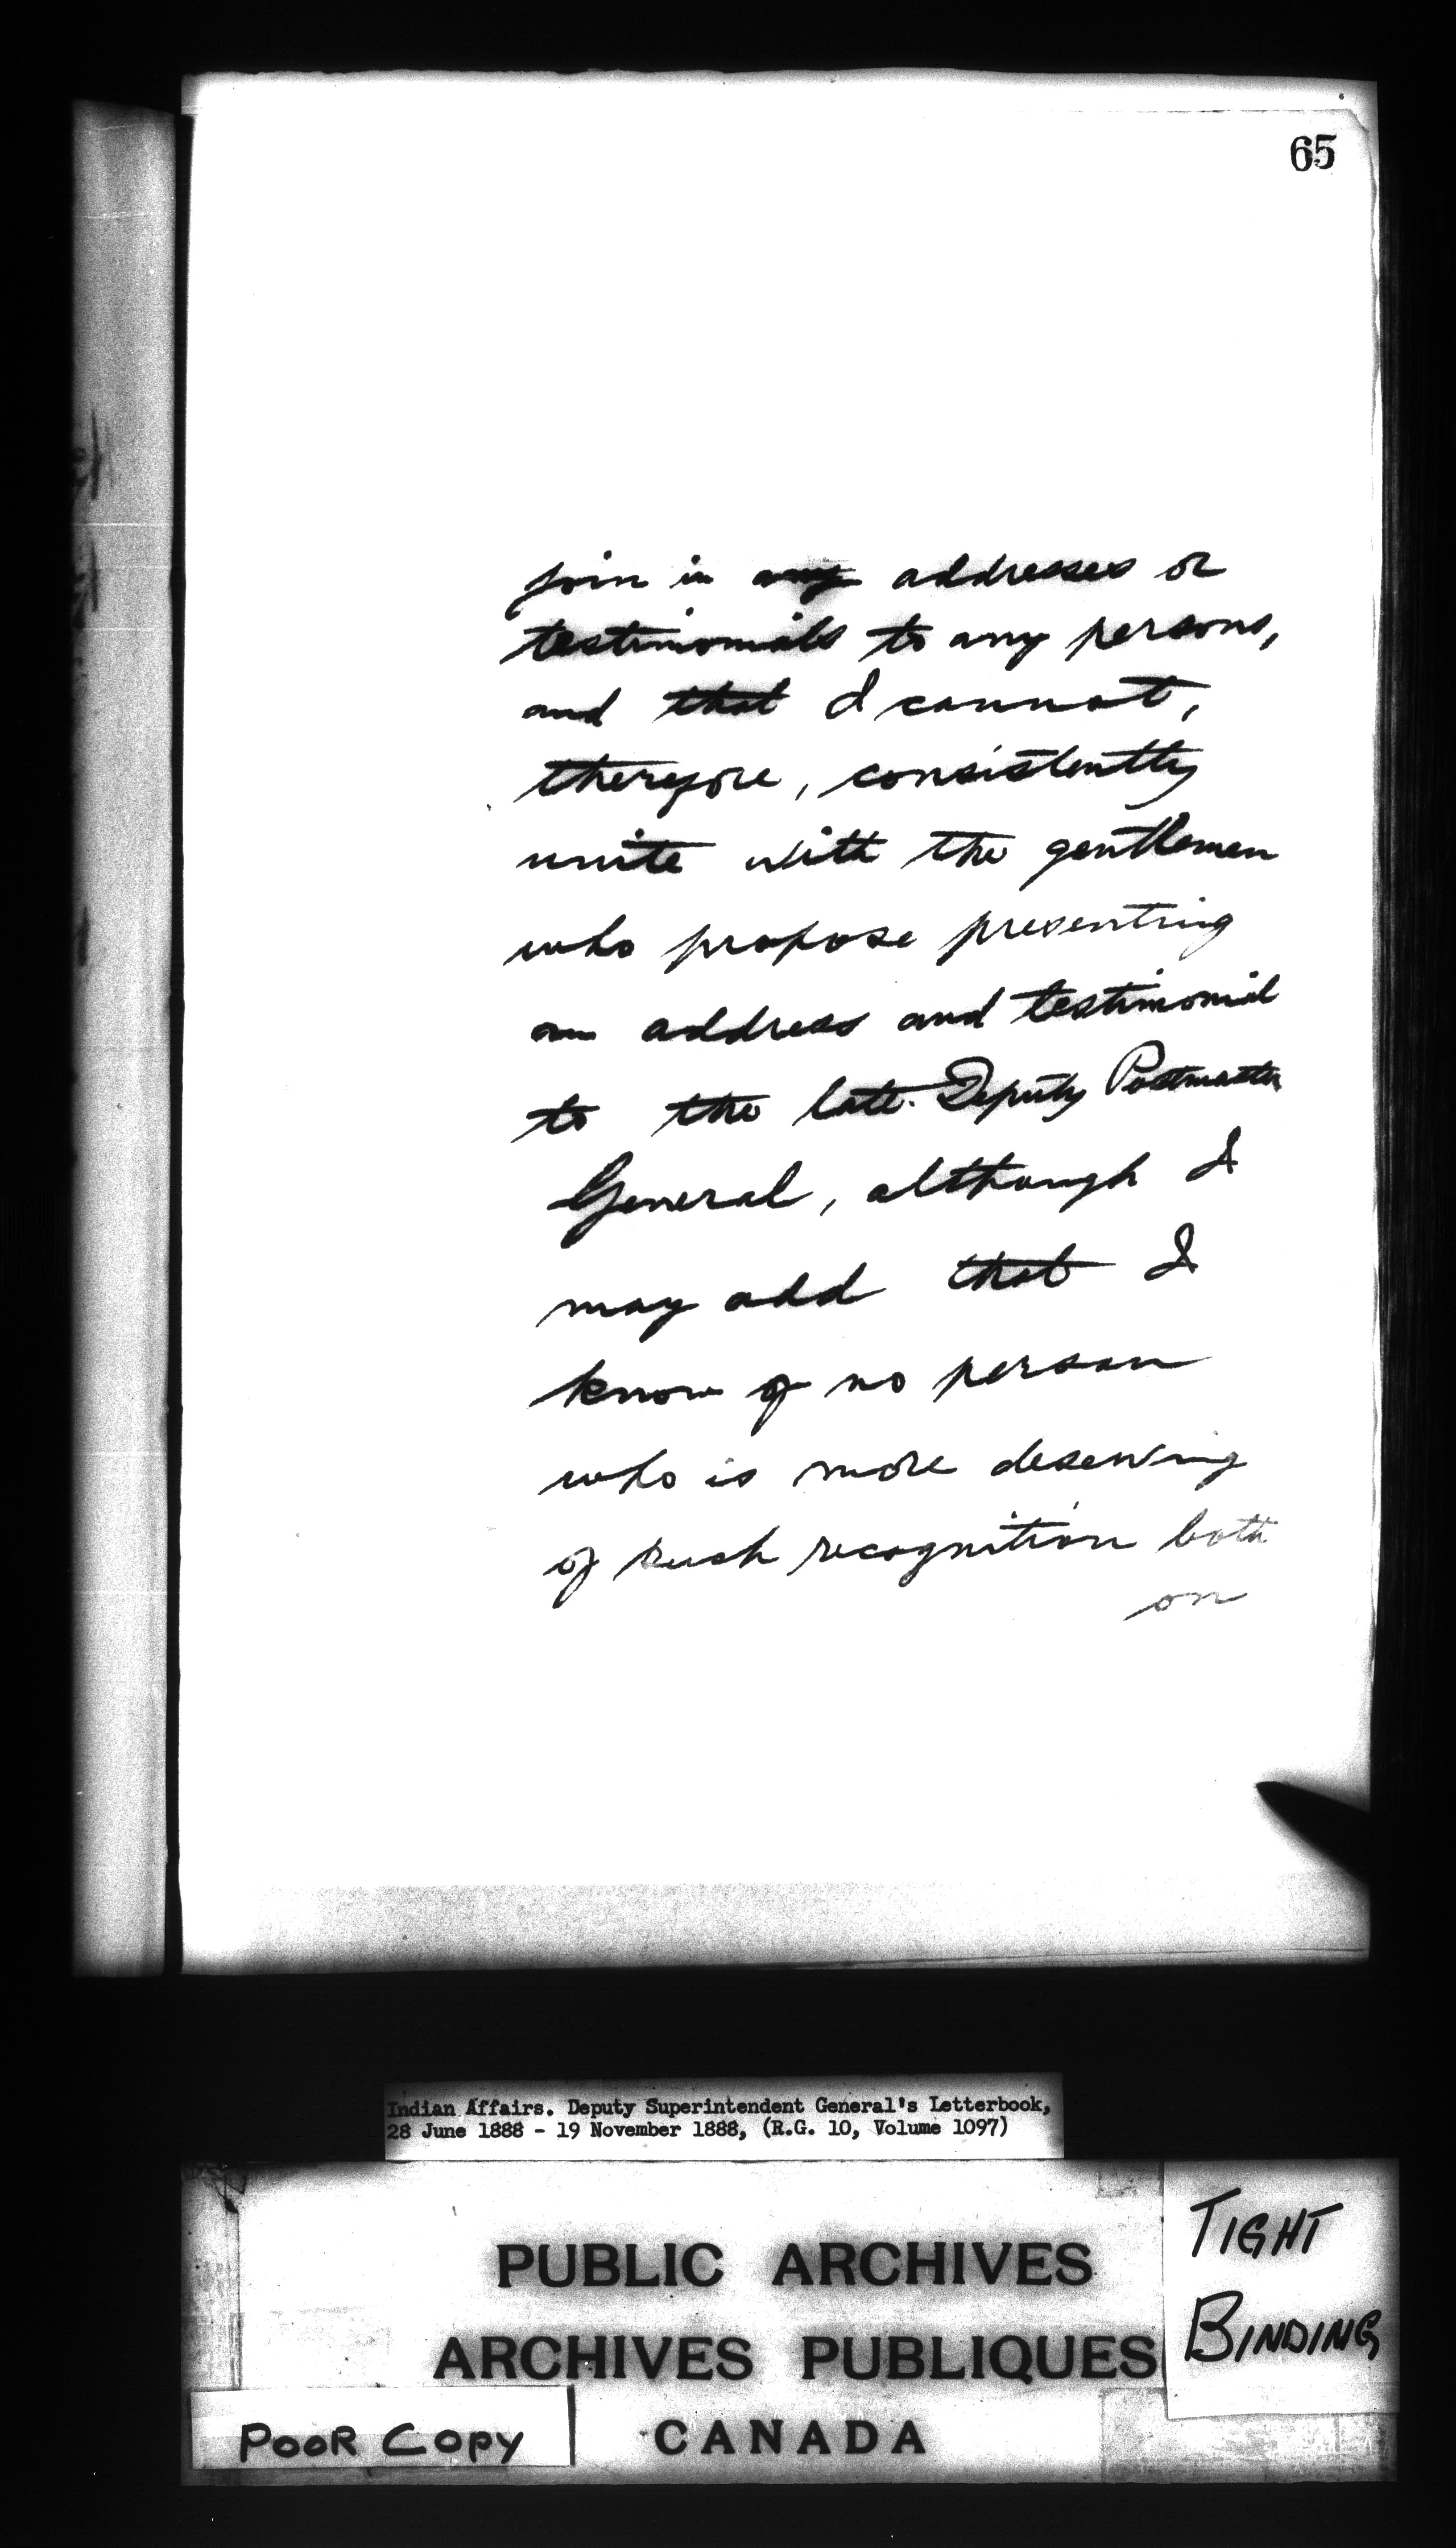 65
join in any addresses or
testimonials to any persons,
and that I cannot,
therefore, consistently
unite with the gentlemen
who propose presenting
an address and testimonial
to the late Deputy Postmaster
General, although I
may add that I
know of no person
who is more deserving
of such recognition both
on
Indian Affairs. Deputy Superintendent General's Letterbook,
28 June 1888 - 19 November 1888, (R.G. 10, Volume 1097)
PUBLIC ARCHIVES
ARCHIVES PUBLIQUES
CANADA
TIGHT
BINDING
POOR COPY